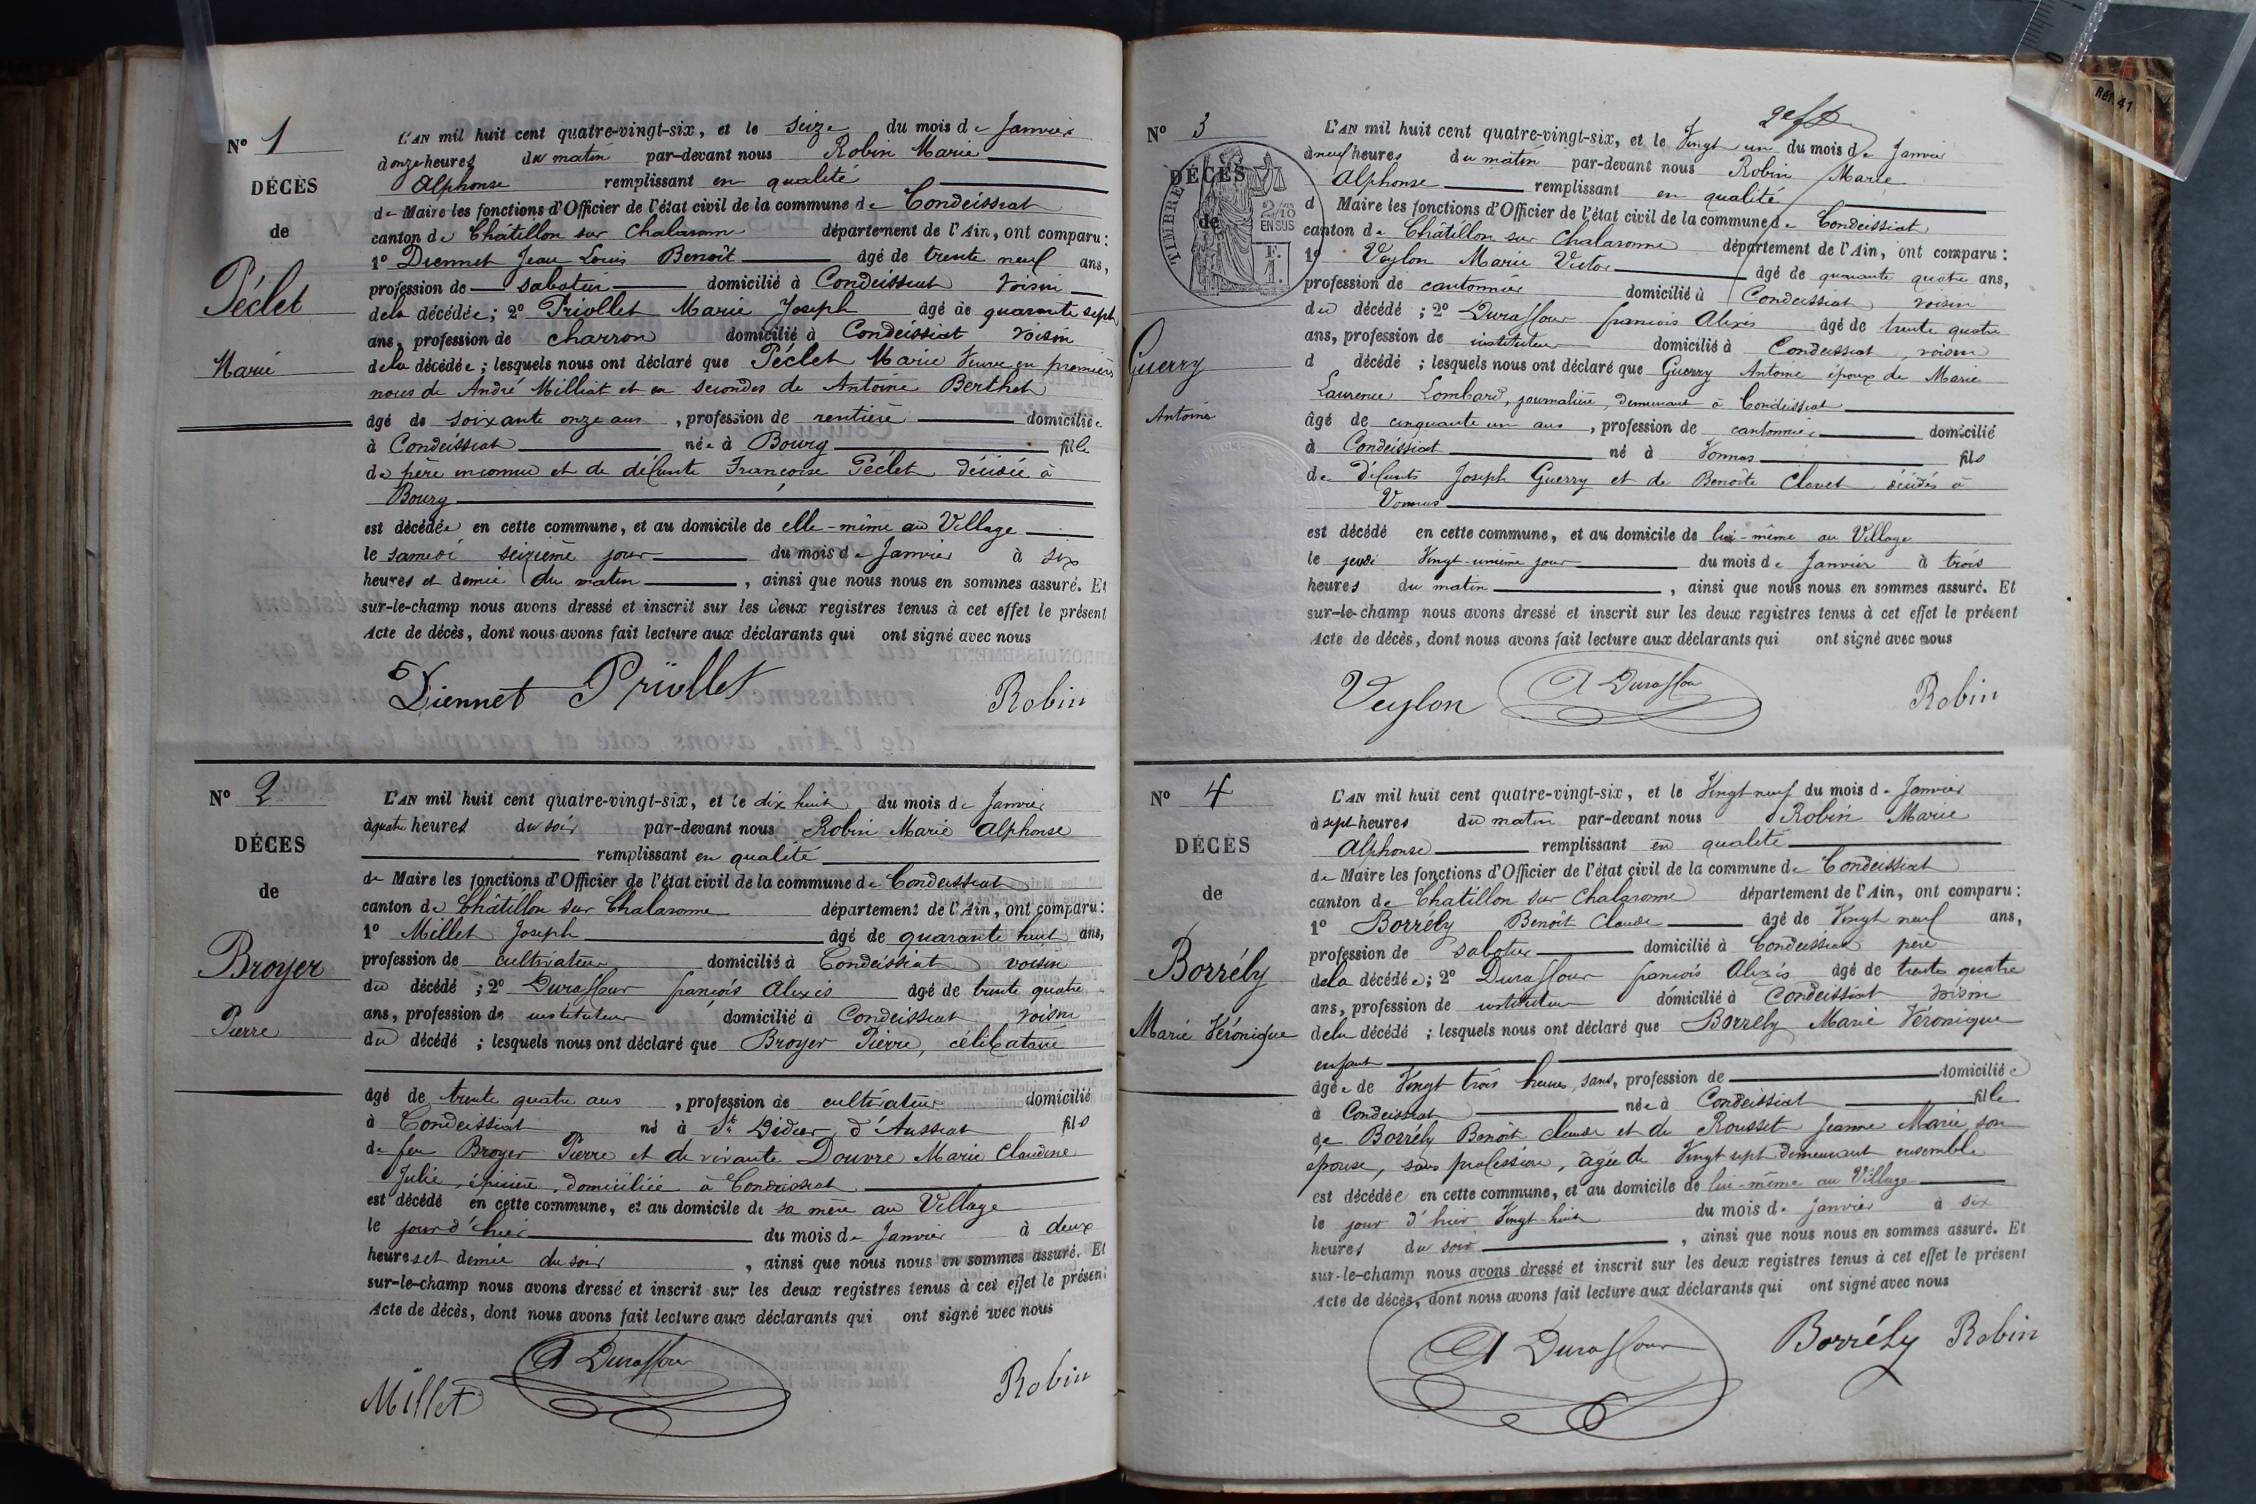 N° 1
DÉCÈS
de
Péclet
Marie
L'AN mil huit cent quatre-vingt-six, et le seize du mois de Janvier
à onze heures du matin par-devant nous Robin Marie
Alphonse remplissant en qualité
de Maire les fonctions d'Officier de l'état civil de la commune de Condeissiat
canton de Châtillon sur Chalaronne département de l'Ain, ont comparu :
1° Diennet Jean Louis Benoît âgé de trente neuf ans,
profession de sabotier domicilié à Condeissiat voisin
de la décédée ; 2° Priollet Marie Joseph âgé de quarante sept
ans, profession de charron domicilié à Condeissiat voisin
de la décédée ; lesquels nous ont déclaré que Péclet Marie Veuve en premières
noces de André Milliat et en secondes de Antoine Berthet
âgé de soixante onze ans , profession de rentière domiciliée
à Condeissiat née à Bourg fille
de père inconnu et de défunte Françoise Péclet décédée à
Bourg
est décédée en cette commune, et au domicile de elle-même au Village
le samedi seizième jour du mois de Janvier à six
heures et demie du matin , ainsi que nous nous en sommes assuré. Et
sur-le-champ nous avons dressé et inscrit sur les deux registres tenus à cet effet le présent
Acte de décès, dont nous avons fait lecture aux déclarants qui ont signé avec nous
Diennet Priollet Robin
N° 2
DÉCES
de
Broyer
Pierre
L'AN mil huit cent quatre-vingt-six, et le dix huit du mois de Janvier
à quatre heures du soir par-devant nous Robin Marie Alphonse
remplissant en qualité
de Maire les fonctions d'Officier de l'état civil de la commune de Condeissiat
canton de Châtillon sur Chalaronne département de l'Ain, ont comparu :
1° Millet Joseph âgé de quarante huit ans,
profession de cultivateur domicilié à Condeissiat voisin
du décédé ; 2° Duraffour françois Alexis âgé de trente quatre
ans, profession de instituteur domicilié à Condeissiat voisin
du décédé ; lesquels nous ont déclaré que Broyer Pierre, célibataire
âgé de trente quatre ans , profession de cultivateur domicilié
à Condeissiat né à St Didier d'Aussiat fils
de feu Broyer Pierre et de vivante Douvre Marie Claudine
Julie, épicière, domiciliée à Condeissiat
est décédé en cette commune, et au domicile de sa mère au Village
le jour d'hier du mois de Janvier à deux
heures et demie du soir , ainsi que nous nous en sommes assuré. Et
sur-le-champ nous avons dressé et inscrit sur les deux registres tenus à cet effet le présent
Acte de décès, dont nous avons fait lecture aux déclarants qui ont signé avec nous
Millet A Duraffour Robin
Réf. 41
N° 3
DÉCÈS
de
TIMBRE
2/10 EN SUS
F. 1.
Guerry
Antoine
L'AN mil huit cent quatre-vingt-six, et le Vingt un du mois de Janvier
à neuf heures du matin par-devant nous Robin Marie
Alphonse remplissant en qualité
d Maire les fonctions d'Officier de l'état civil de la commune de Condeissiat
canton de Châtillon sur Chalaronne département de l'Ain, ont comparu :
1° Veylon Marie Victor âgé de quarante quatre ans,
profession de cantonnier domicilié à Condeissiat voisin
du décédé ; 2° Duraffour françois Alexis âgé de trente quatre
ans, profession de instituteur domicilié à Condeissiat voisin
d décédé ; lesquels nous ont déclaré que Guerry Antoine époux de Marie
Laurence Lombard, journalière, demeurant à Condeissiat
âgé de cinquante un ans , profession de cantonnier domicilié
à Condeissiat né à Vonnas fils
de défunts Joseph Guerry et de Benoîte Clavet décédés à
Vonnas
est décédé en cette commune, et au domicile de lui-même au Village
le jeudi Vingt-unième jour du mois de Janvier à trois
heures du matin , ainsi que nous nous en sommes assuré. Et
sur-le-champ nous avons dressé et inscrit sur les deux registres tenus à cet effet le présent
Acte de décès, dont nous avons fait lecture aux déclarants qui ont signé avec nous
Veylon A Duraffour Robin
N° 4
DÉCÈS
de
Borrély
Marie Véronique
L'AN mil huit cent quatre-vingt-six, et le Vingt neuf du mois de Janvier
à sept heures du matin par-devant nous Robin Marie
Alphonse remplissant en qualité
de Maire les fonctions d'Officier de l'état civil de la commune de Condeissiat
canton de Châtillon sur Chalaronne département de l'Ain, ont comparu :
1° Borrély Benoît Claude âgé de Vingt neuf ans,
profession de sabotier domicilié à Condeissiat père
de la décédée ; 2° Duraffour françois Alexis âgé de trente quatre
ans, profession de instituteur domicilié à Condeissiat voisin
de la décédé ; lesquels nous ont déclaré que Borrély Marie Véronique
enfant
âgée de Vingt trois heures, sans, profession de domiciliée
à Condeissiat née à Condeissiat fille
de Borrély Benoît Claude et de Rousset Jeanne Marie, son
épouse, sans profession, âgée de Vingt sept demeurant ensemble
est décédée en cette commune, et au domicile de lui-même au Village
le jour d'hier Vingt huit du mois de Janvier à six
heures du soir , ainsi que nous nous en sommes assuré. Et
sur-le-champ nous avons dressé et inscrit sur les deux registres tenus à cet effet le présent
Acte de décès, dont nous avons fait lecture aux déclarants qui ont signé avec nous
A Duraffour Borrély Robin